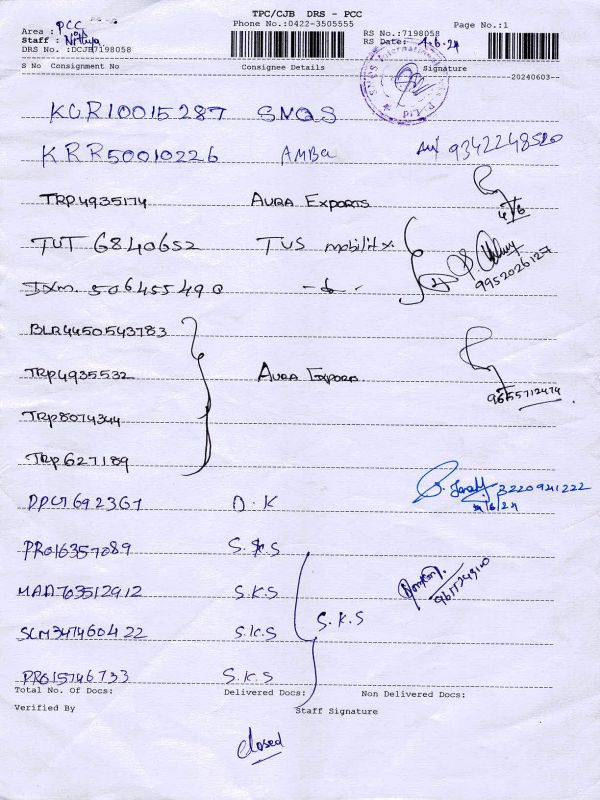 TPC/CJB DRS - PCC
Area : PCC
Phone No.:0422-3505555
Page No.:1
Staff : Nithya
RS No.:7198058
DRS No. :DCJB7198058
RS Date: 4-6-24
S No Consignment No Consignee Details Signature
20240603--
KGR10015287 SNQS
KRR50010226 AMBa 9342248520
TRP4935174 AURA EXPORTS 4/6
TUT 6840652 TUS mobility
9952026127
JXM. 506455490 -do-
BLR4450543783
TRP4935532 AURA EXPORTS 9655712474
TRP8074344
TRP627189
DPC7692367 D.K 3220921222
4/6/24
PRO16357089 S.K.S
MAA763512912 S.K.S
S.K.S
SCM347460422 S.K.S
PRO15746733 S.K.S
Total No. Of Docs: Delivered Docs: Non Delivered Docs:
Verified By Staff Signature
closed